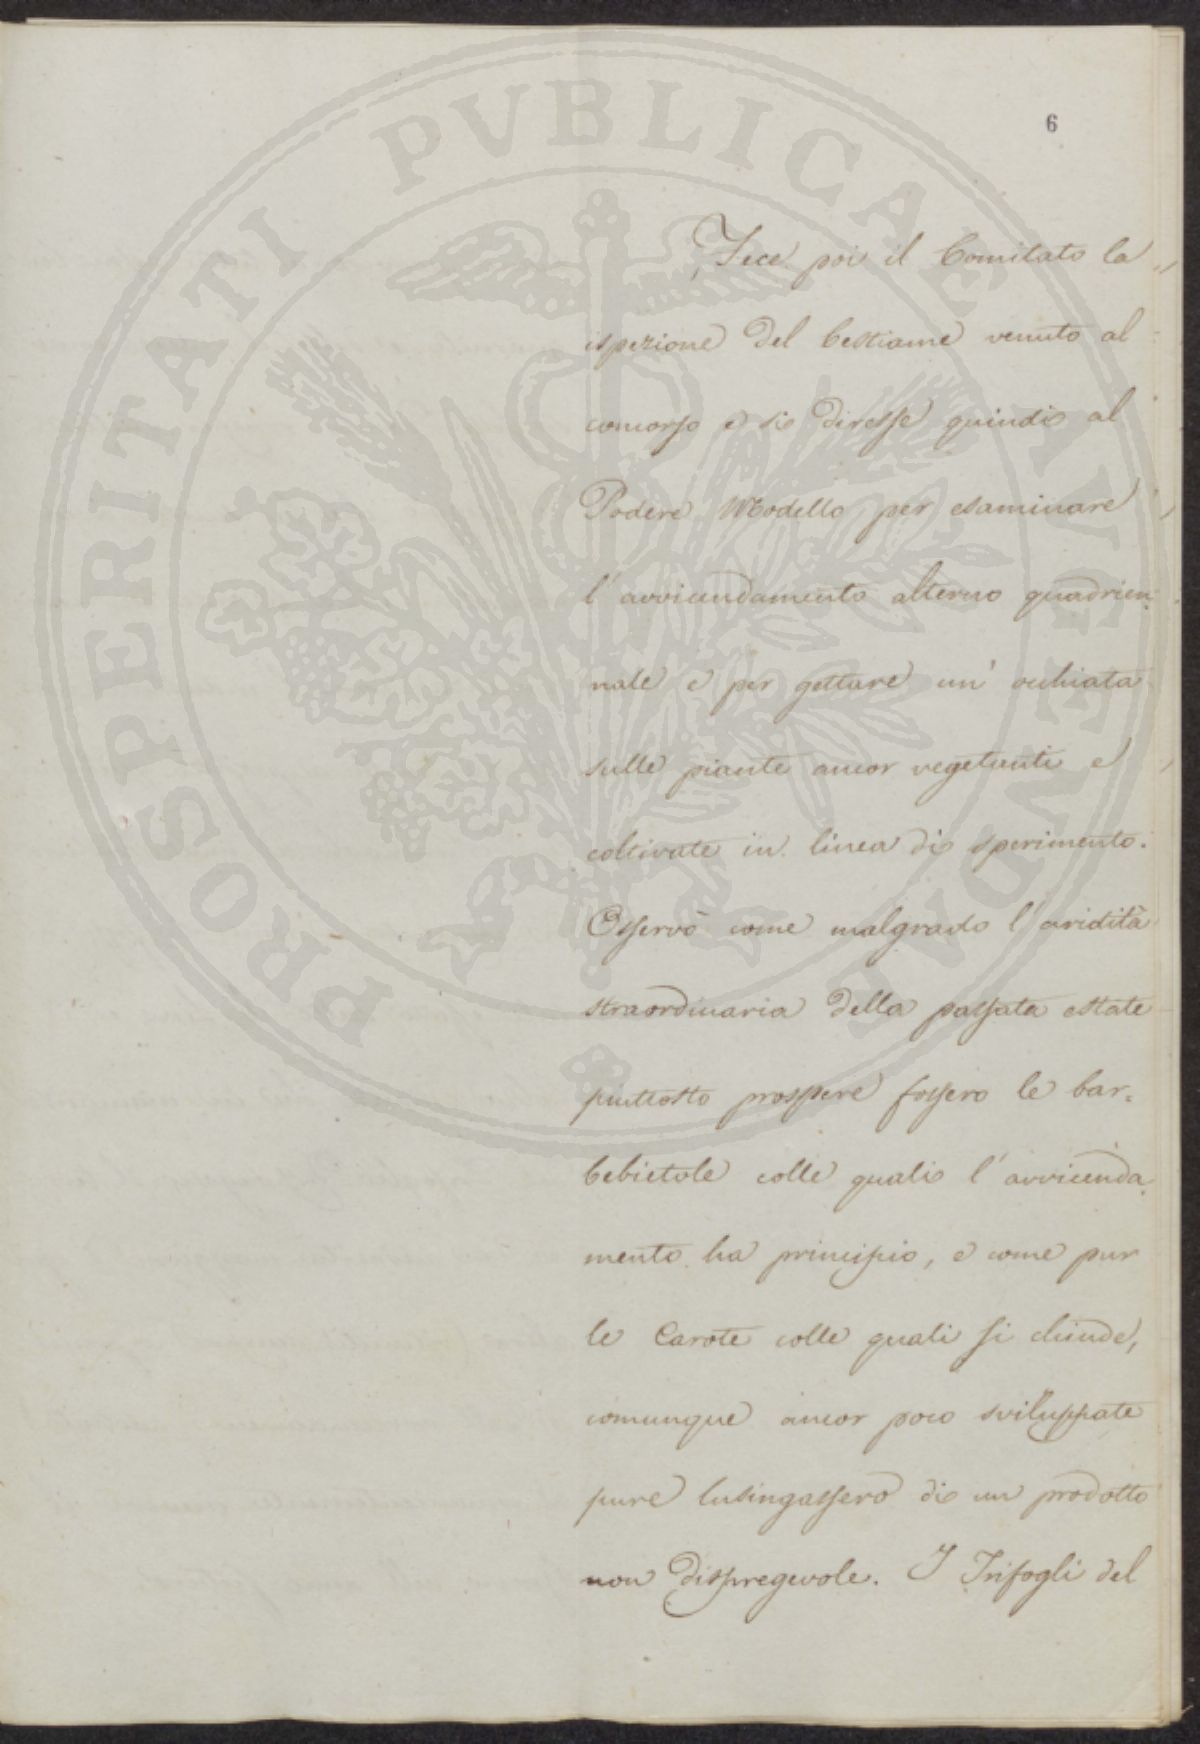 PROSPERITATI PVBLICAE AVGENDAE
6
Fece poi il Comitato la
ispezione del bestiame venuto al
concorso e si diresse quindi al
Podere Modello per esaminare
l'avvicendamento alterno quadrien:
nale e per gettare un'occhiata
sulle piante ancor vegetanti e
coltivate in linea di sperimento.
Osservò come malgrado l'aridità
straordinaria della passata estate
piuttosto prospere fossero le bar:
bebietole colle quali l'avvicenda:
mento ha principio, e come pur
le Carote colle quali si chiude,
comunque ancor poco sviluppate
pure lusingassero di un prodotto
non dispregevole. I Trifogli del